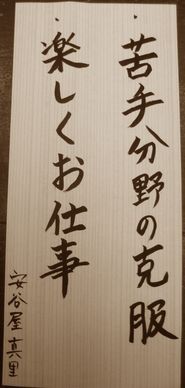 ・苦手分野の克服
・楽しくお仕事
安谷屋真里